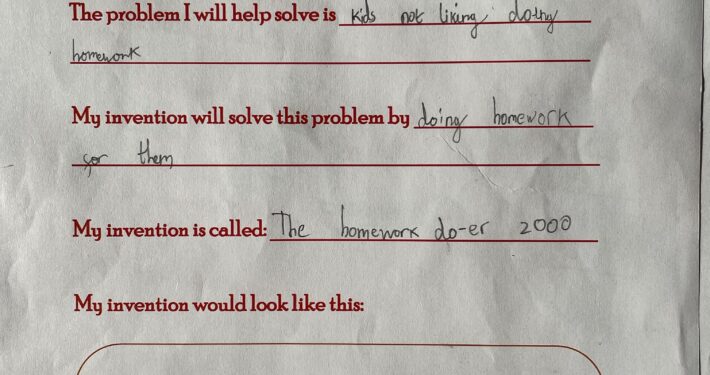 The problem I will help solve is kids not liking doing
homework
My invention will solve this problem by doing homework
for them
My invention is called: The homework do-er 2000
My invention would look like this: